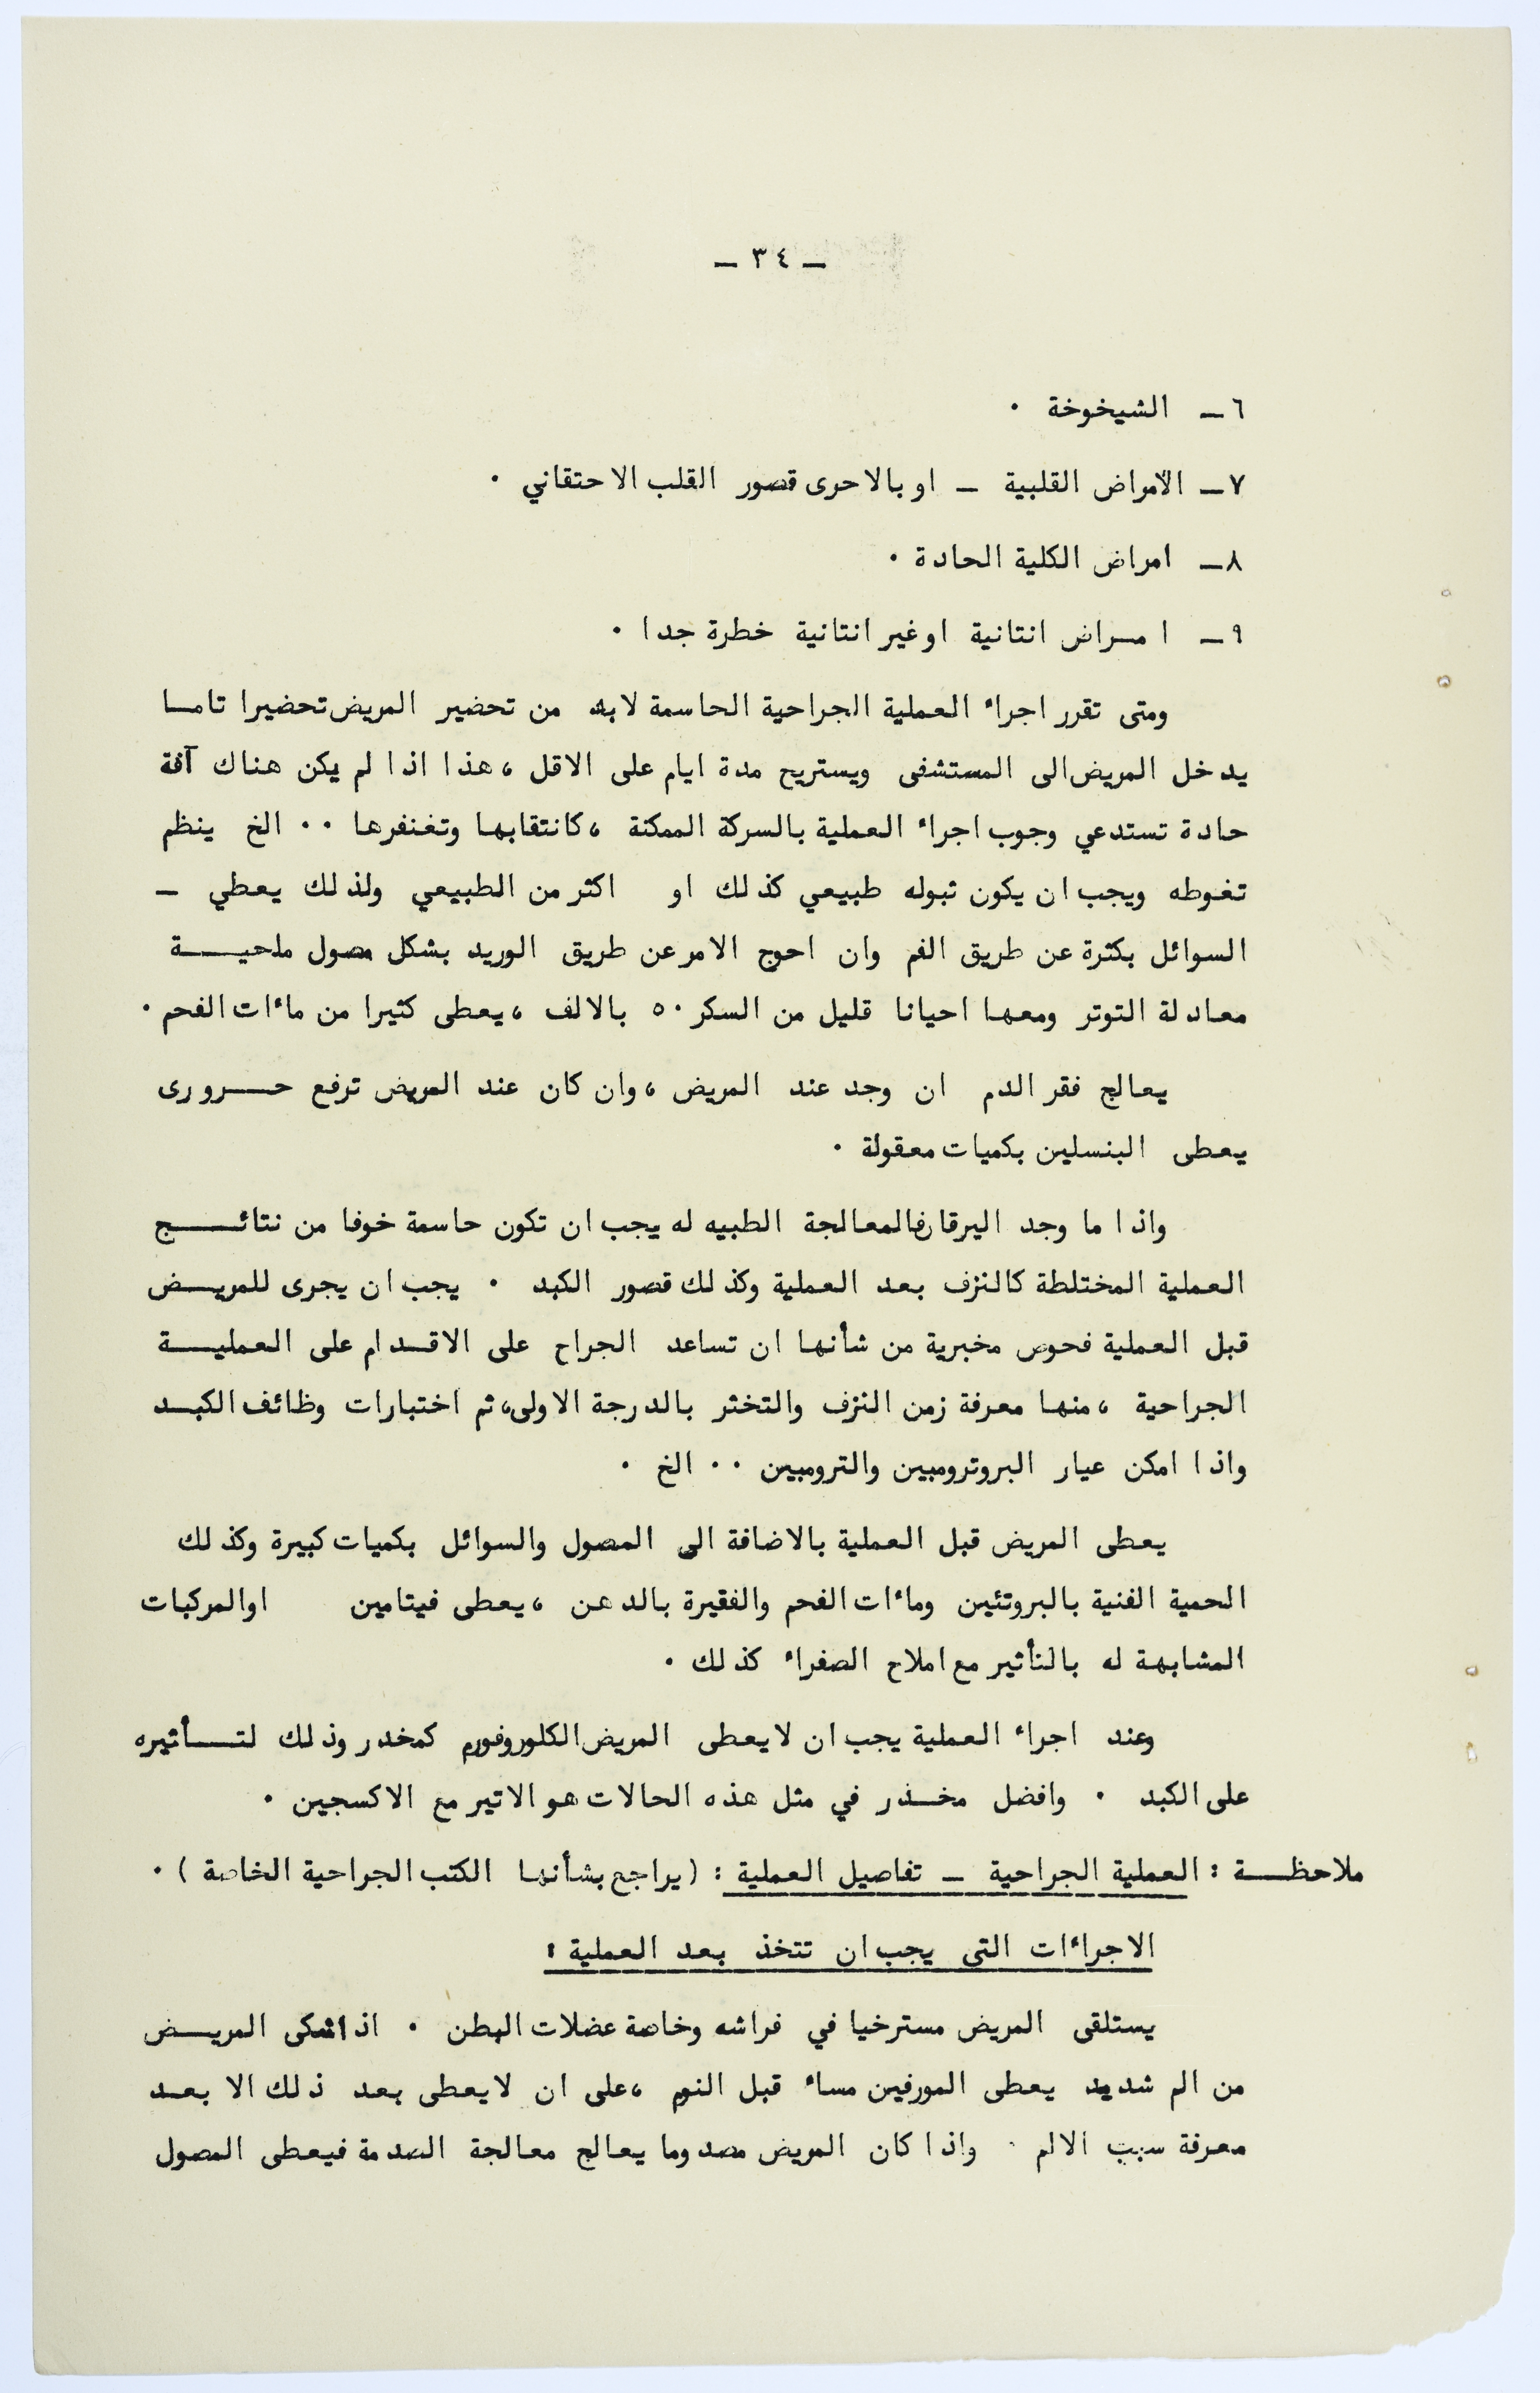 ـ ٣٤ ـ
٦ـ الشيخوخة ٠
٧ـ الأمراض القلبية ـ او بالاحرى قصور القلب الاحتقاني ٠
٨ـ امراض الكلية الحادة ٠
٩ـ امـراض انتانية او غير انتانية خطرة جدا ٠
ومتى تقرر اجراء العملية الجراحية الحاسمة لابد من تحضير المريض تحضيرا تامـا
يدخل المريض الى المستشفى ويستريح مدة ايام على الاقل ، هذا اذا لم يكن هناك آفة
حادة تستدعي وجوب اجراء العملية بالسركة الممكنة ، كانتقابها وتغنفرها ٠٠ الخ ينظم
تغوطه ويجب ان يكون تبوله طبيعي كذلك او اكثر من الطبيعي ولذلك يعطي ـ
السوائل بكثرة عن طريق الفم وان احوج الامر عن طريق الوريد بشكل مصول ملحيـــة
معادلة التوتر ومعها احيانا قليل من السكر ٥٠ بالالف ، يعطى كثيرا من ماءات الفحم ٠
يعالج فقر الدم ان وجد عند المريض ، وان كان عند المريض ترفع حـــرورى
يعطى البنسلين بكميات معقولة ٠
واذا ما وجد اليرقان فالمعالجة الطبيه له يجب ان تكون حاسمة خوفا من نتائـــج
العملية المختلطة كالنزف بعد العملية وكذلك قصور الكبد ٠ يجب ان يجرى للمريـــض
قبل العملية فحوص مخبرية من شأنها ان تساعد الجراح على الاقـدام على العمليـــة
الجراحية ، منها معرفة زمن النزف والتخثر بالدرجة الاولى، ثم اختبارات وظائف الكبـد
واذا امكن عيار البروترومبين والترومبين ٠٠ الخ ٠
يعطى المريض قبل العملية بالاضافة الى المصول والسوائل بكميات كبيرة وكذلك
الحمية الغنية بالبروتئين وماءات الفحم والفقيرة بالدهن ، يعطى فيتامين اوالمركبات
المشابهة له بالتأثير مع املاح الصفراء كذلك ٠
وعند اجراء العملية يجب ان لايعطى المريض الكلوروفورم كمخدر وذلك لتـــأثيره
على الكبد ٠ وافضل مخـدر في مثل هذه الحالات هو الاتير مع الاكسجين ٠
ملاحظـــة : العملية الجراحية ـ تفاصيل العملية : ( يراجع بشأنها الكتب الجراحية الخاصة ) ٠
الاجراءات التى يجب ان تتخذ بعد العملية :
يستلقى المريض مسترخيا في فراشه وخاصة عضلات البطن ٠ اذا شكى المريـــض
من الم شديد يعطى المورفين مساء قبل النوم ، على ان لايعطى بعد ذلك الا بعـد
معرفة سبب الالم ٠ واذا كان المريض مصدوما يعالج معالجة الصدمة فيعطى المصول